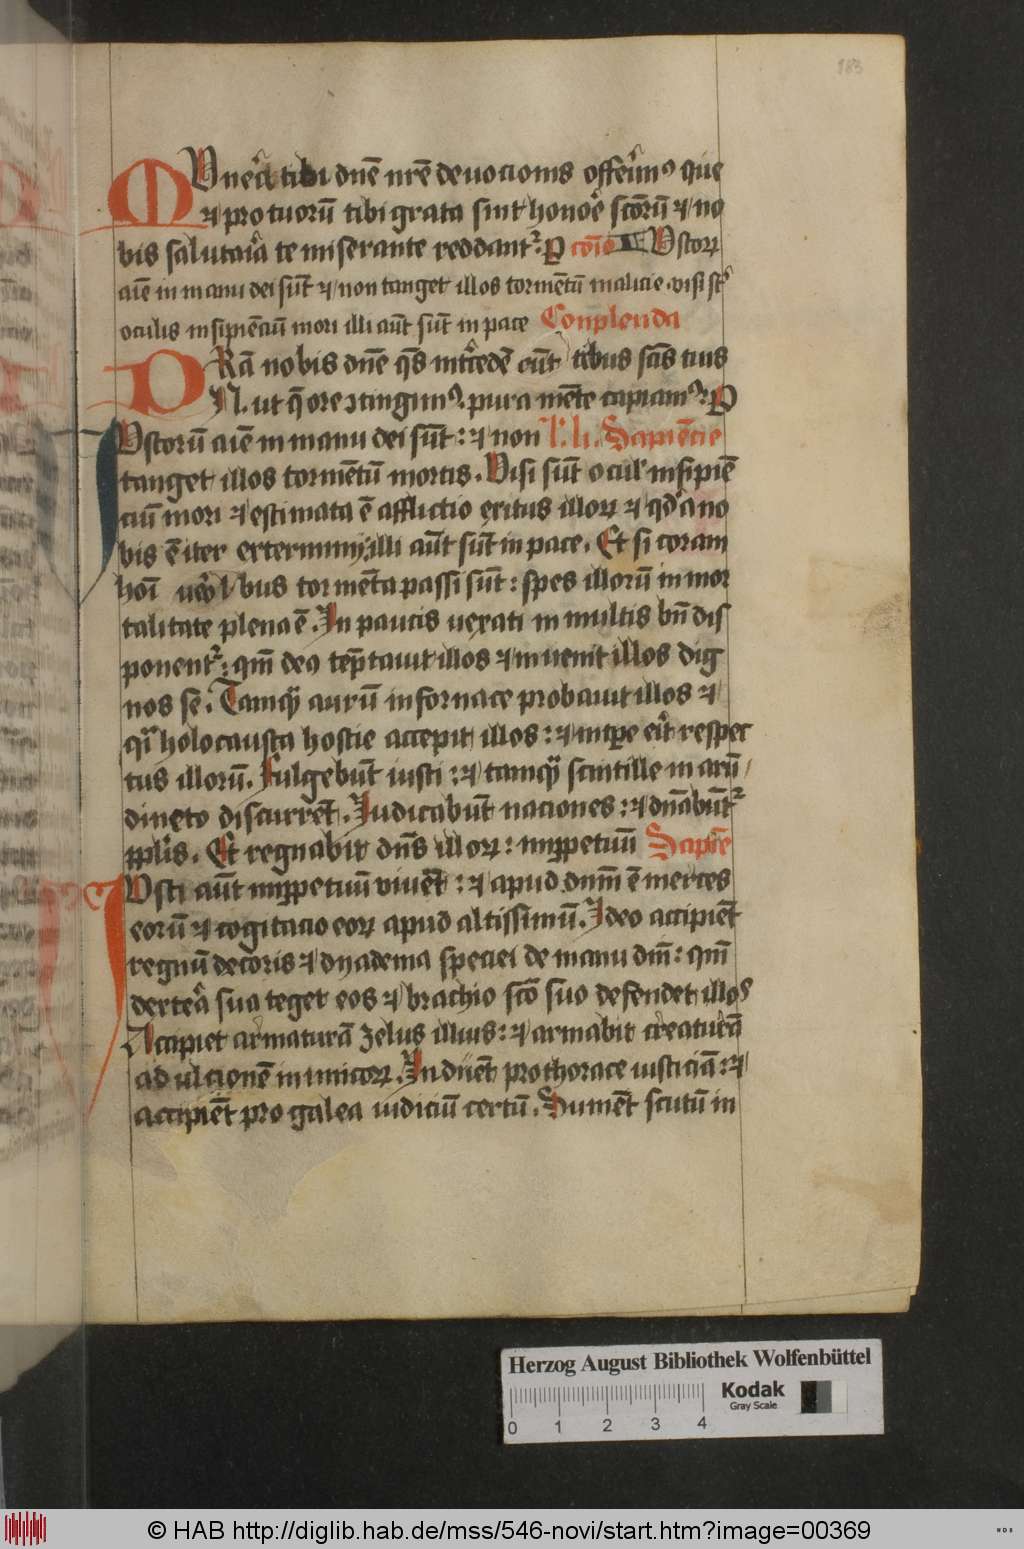 183
MUnera tibi dne nre deuocionis offerim9 que
⁊ pro tuorū tibi grata sint honore scorū ⁊ no
bis salutaria te miserante reddant᷑. P cōio Ustoꝝ
aīe in manu dei sūt ⁊ non tanget illos tormētū malicie. visi st
oculis insipiēciū mori illi aūt sūt in pace Conplenda
PRā nobis dne qs īntcedē tibus scīs tuis
N. ut q̄ ore ↄtingim9. pura mēte capiam9. P
IUstorū aīe in manu dei sūt : ⁊ non l' li. Sapiēcie
tanget illos tormētū mortis. Visi sūt ocul' insipiē
ciū mori ⁊ estimata ē afflictio exitus illoꝝ ⁊ qd a no
bis ē iter exterminij: illi aūt sūt in pace. Et si coram
hoī bus tormēta passi sūt : spes illorū inmor
talitate plena ē. In paucis uexati in multis bn̄ dis
ponent᷑ : qm̄ deꝰ tēptauit illos ⁊ inuenit illos dig
nos se. Tamqꝫ aurū in fornace probauit illos ⁊
qⁱ holocausta hostie accepit illos : ⁊ in tpe erit respec
tus illorū. Fulgebūt iusti : ⁊ tamqꝫ scintille in arū
dineto discurrēt. Iudicabūt naciones : ⁊ dn̄abūt᷑
pplis. Et regnabit dn̄s illoꝝ : inꝑpetuū Sapiē
IUsti aūt inꝑpetuū viuēt : ⁊ apud dnm̄ ē merces
eorū ⁊ cogitacio eoꝝ apud altissimū. Ideo accipiēt
regnū decoris ⁊ dyadema speciei de manu dm̄ : qm̄
dextera sua teget eos ⁊ brachio scō suo defendet illos
Accipiet armaturā zelus illius : ⁊ armabit creaturā
ad ulcionē inimicoꝝ. Induēt pro thorace iusticiā : ⁊
accipiēt pro galea iudiciū certū. Sumēt scutū in
Herzog August Bibliothek Wolfenbüttel
Kodak
Gray Scale
0 1 2 3 4
© HAB http://diglib.hab.de/mss/546-novi/start.htm?image=00369